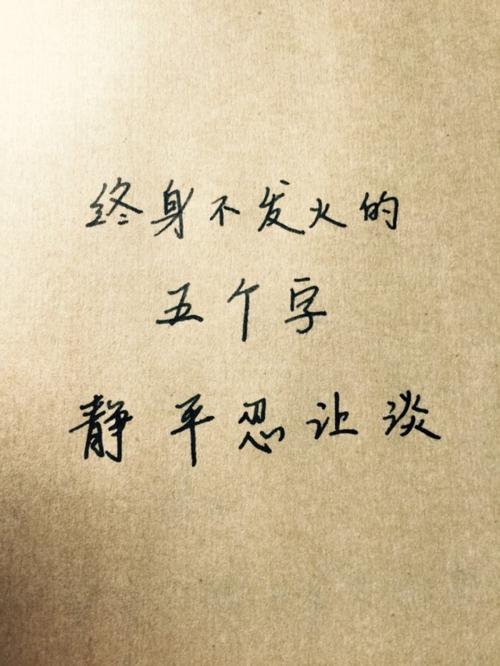 终身不发火的
五个字
静平忍让淡